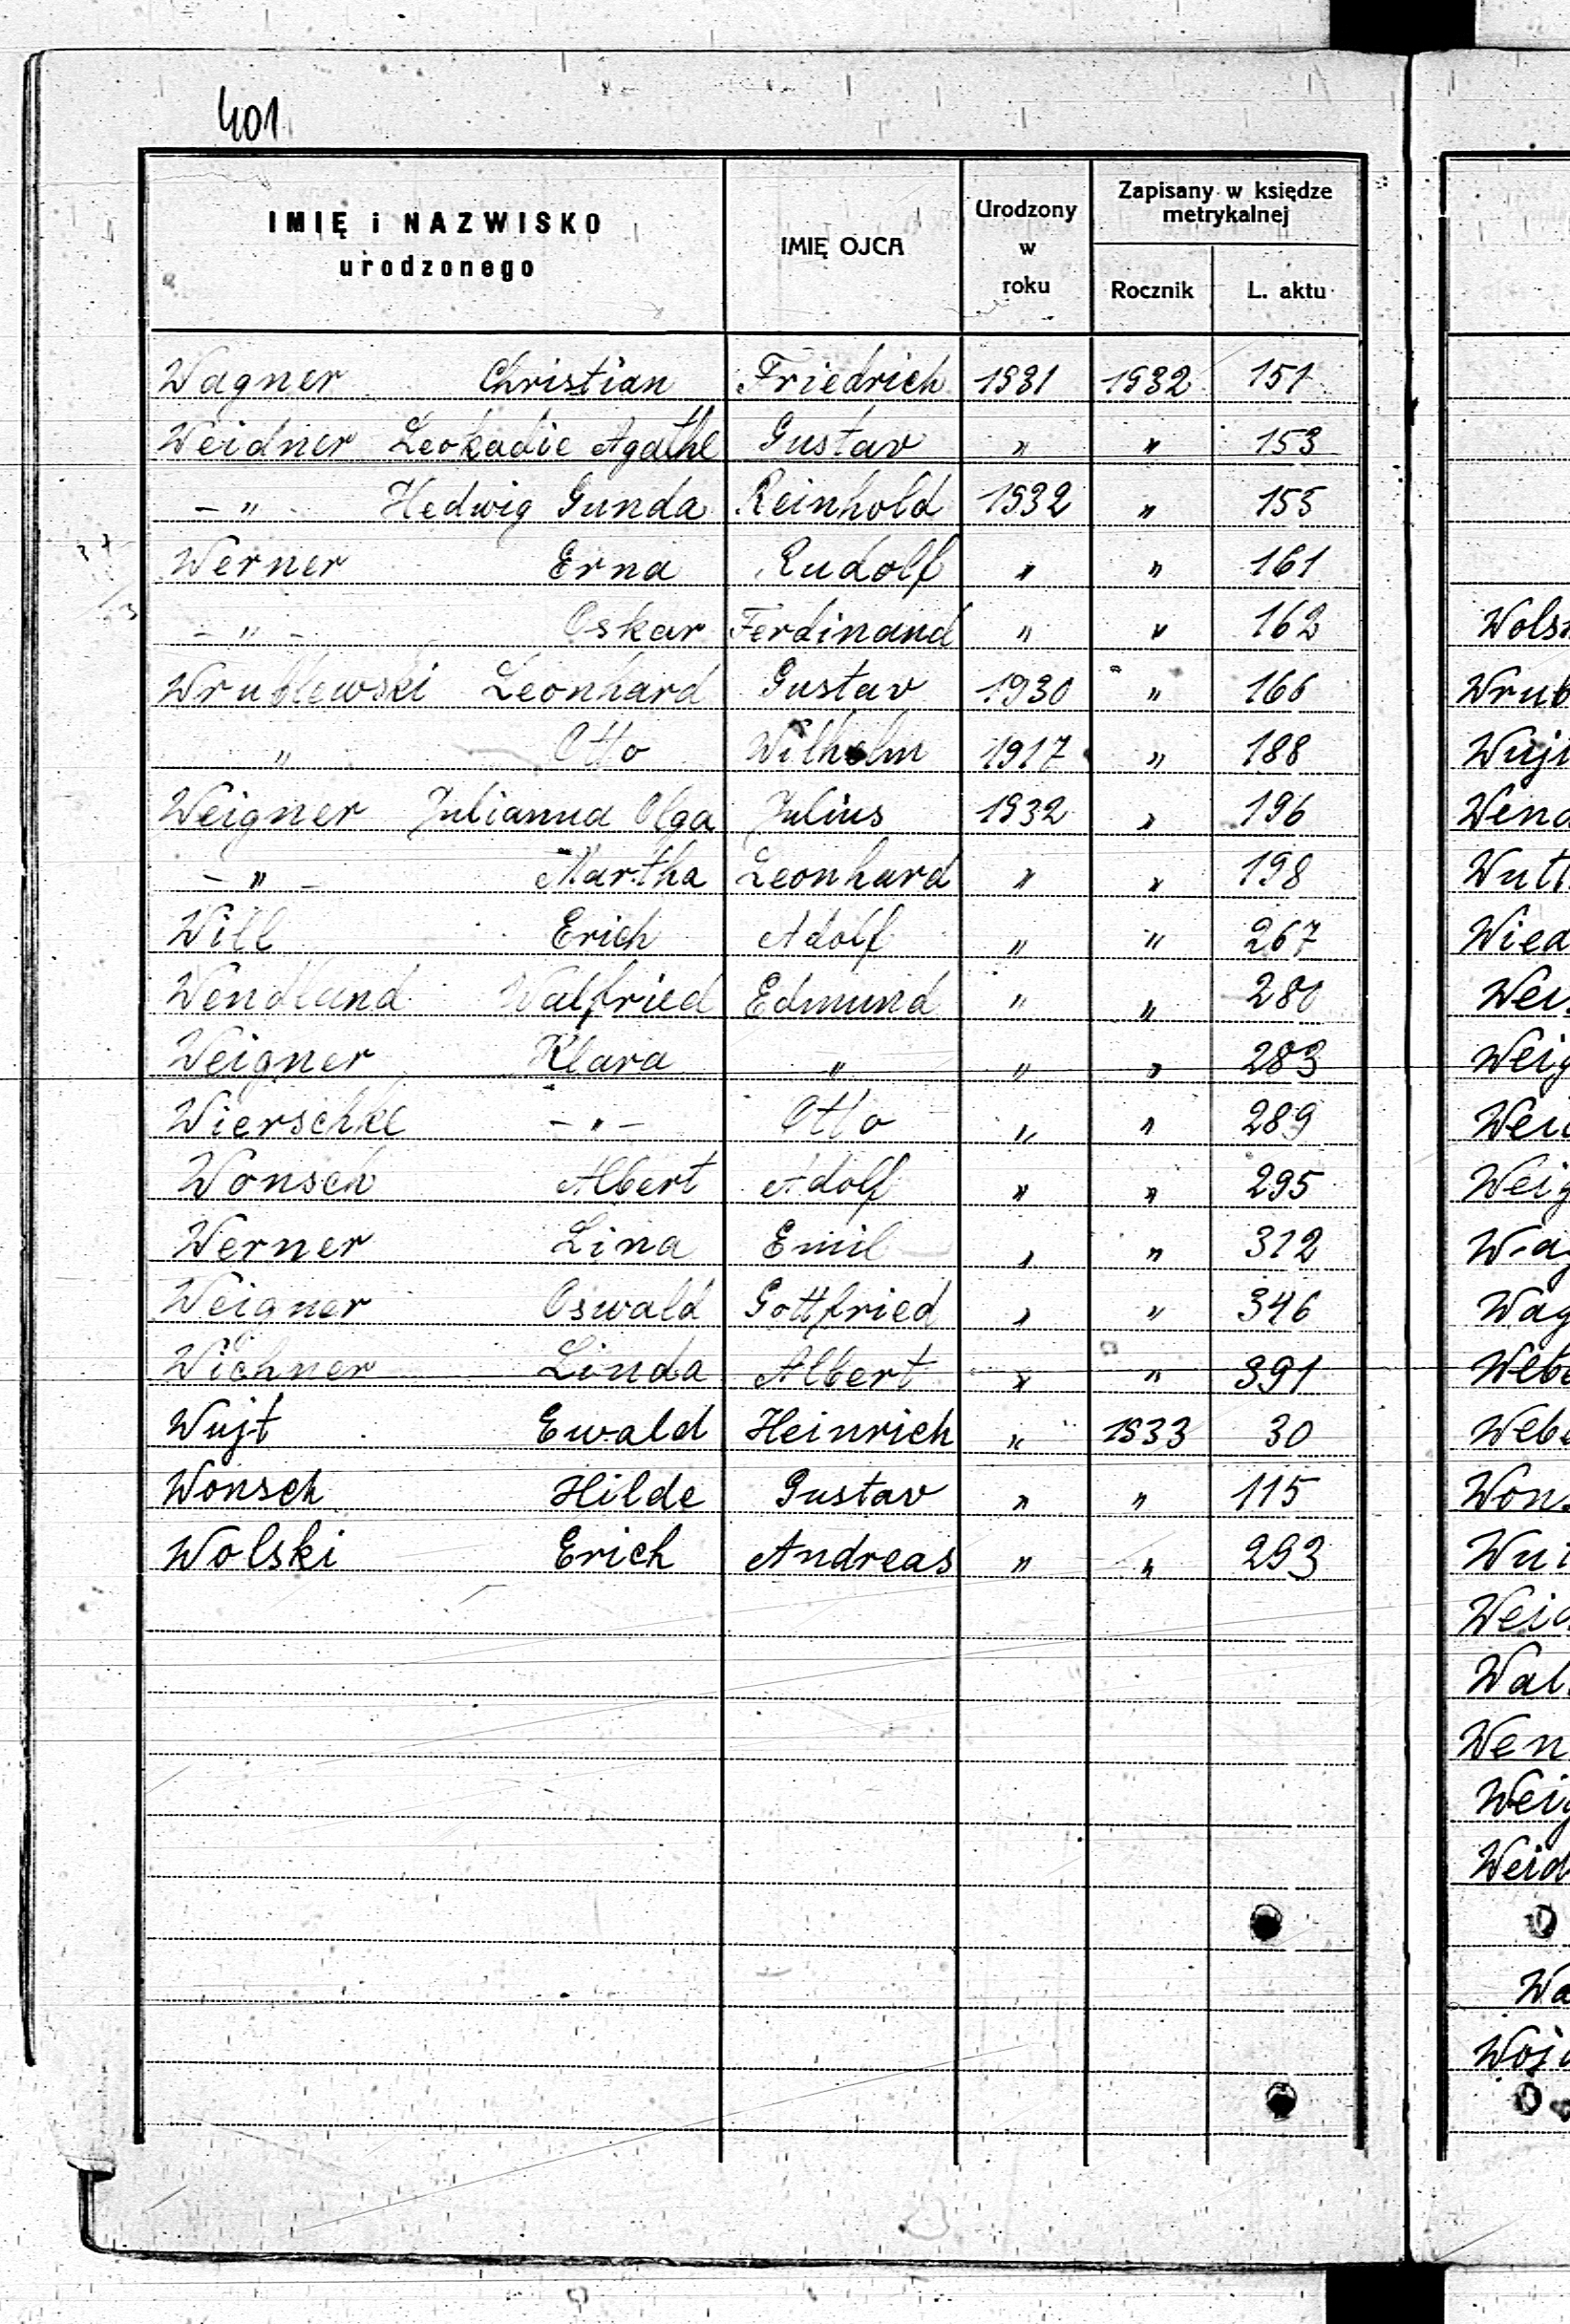 401
IMIĘ i NAZWISKO urodzonego IMIĘ OJCA Urodzony w roku Zapisany w księdze metrykalnej Rocznik L. aktu
Wagner Christian Friedrich 1931 1932 151
Weidner Leokadie Agathe Gustav " " 153
- " - Hedwig Gunda Reinhold 1932 " 155
Werner Erna Rudolf " " 161
- " - Oskar Ferdinand " " 162
Wrublewski Leonhard Gustav 1930 " 166
" Otto Wilhelm 1917 " 188
Weigner Julianna Olga Julius 1932 " 196
- " - Martha Leonhard " " 198
Will Erich Adolf " " 267
Wendland Walfried Edmund " " 280
Weigner Klara " " " 283
Wierschke - " - Otto " " 289
Wonsch Albert Adolf " " 295
Werner Lina Emil " " 312
Weigner Oswald Gottfried " " 346
Wichner Linda Albert " " 391
Wujt Ewald Heinrich " 1933 30
Wonsch Hilde Gustav " " 115
Wolski Erich Andreas " " 293